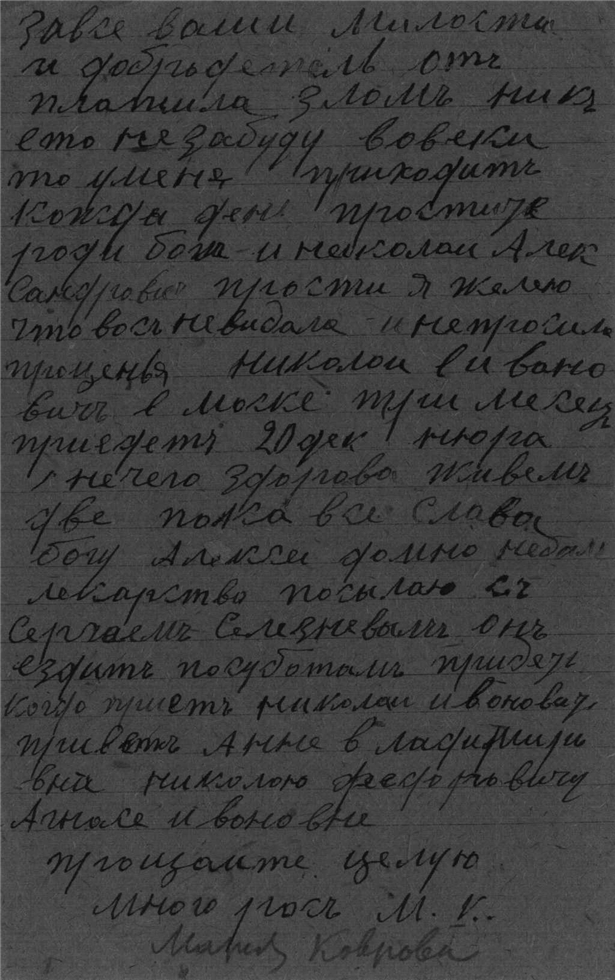 Завсе ваши Милости
и добрьдетель отъ
платила зломъ никъ
ето незабуду вовеки
то уменя приходитъ
кожда день простите
роди бога и неиколаи Алек
Сандрович прости я желею
что восъ невидала и непросила
проценья николои Ивано
вичъ в Моске три месец
приедетъ 20 дек нюра
нечего здорова живемъ
две пока все Слава
богу Алексеи домно небыл
лекарства посылаю съ
Сергчаемъ Селезневымъ онъ
ездитъ посуботамъ придеть
когдо приетъ николаи ивоновичъ
приветъ Анне в ладимири
вне николою федоровичу
Агнасе ивоновне
прощаите целую
много росъ М. К.
Мария Коврова